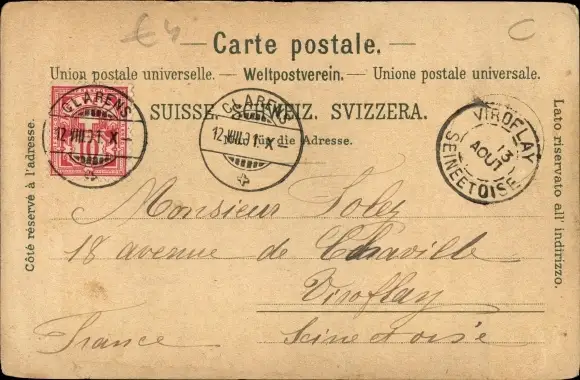 £4 C
— Carte postale. —
Union postale universelle. — Weltpostverein. — Unione postale universale.
SUISSE. SCHWEIZ. SVIZZERA.
Nur für die Adresse.
Côté réservé à l'adresse.
Lato riservato all' indirizzo.
CLARENS
12.VIII.01. X
10
CLARENS
12.VIII.01. X
VIROFLAY
13
AOUT
SEINE ET OISE
Monsieur
18 avenue de Chaville
Viroflay
France Seine et oise